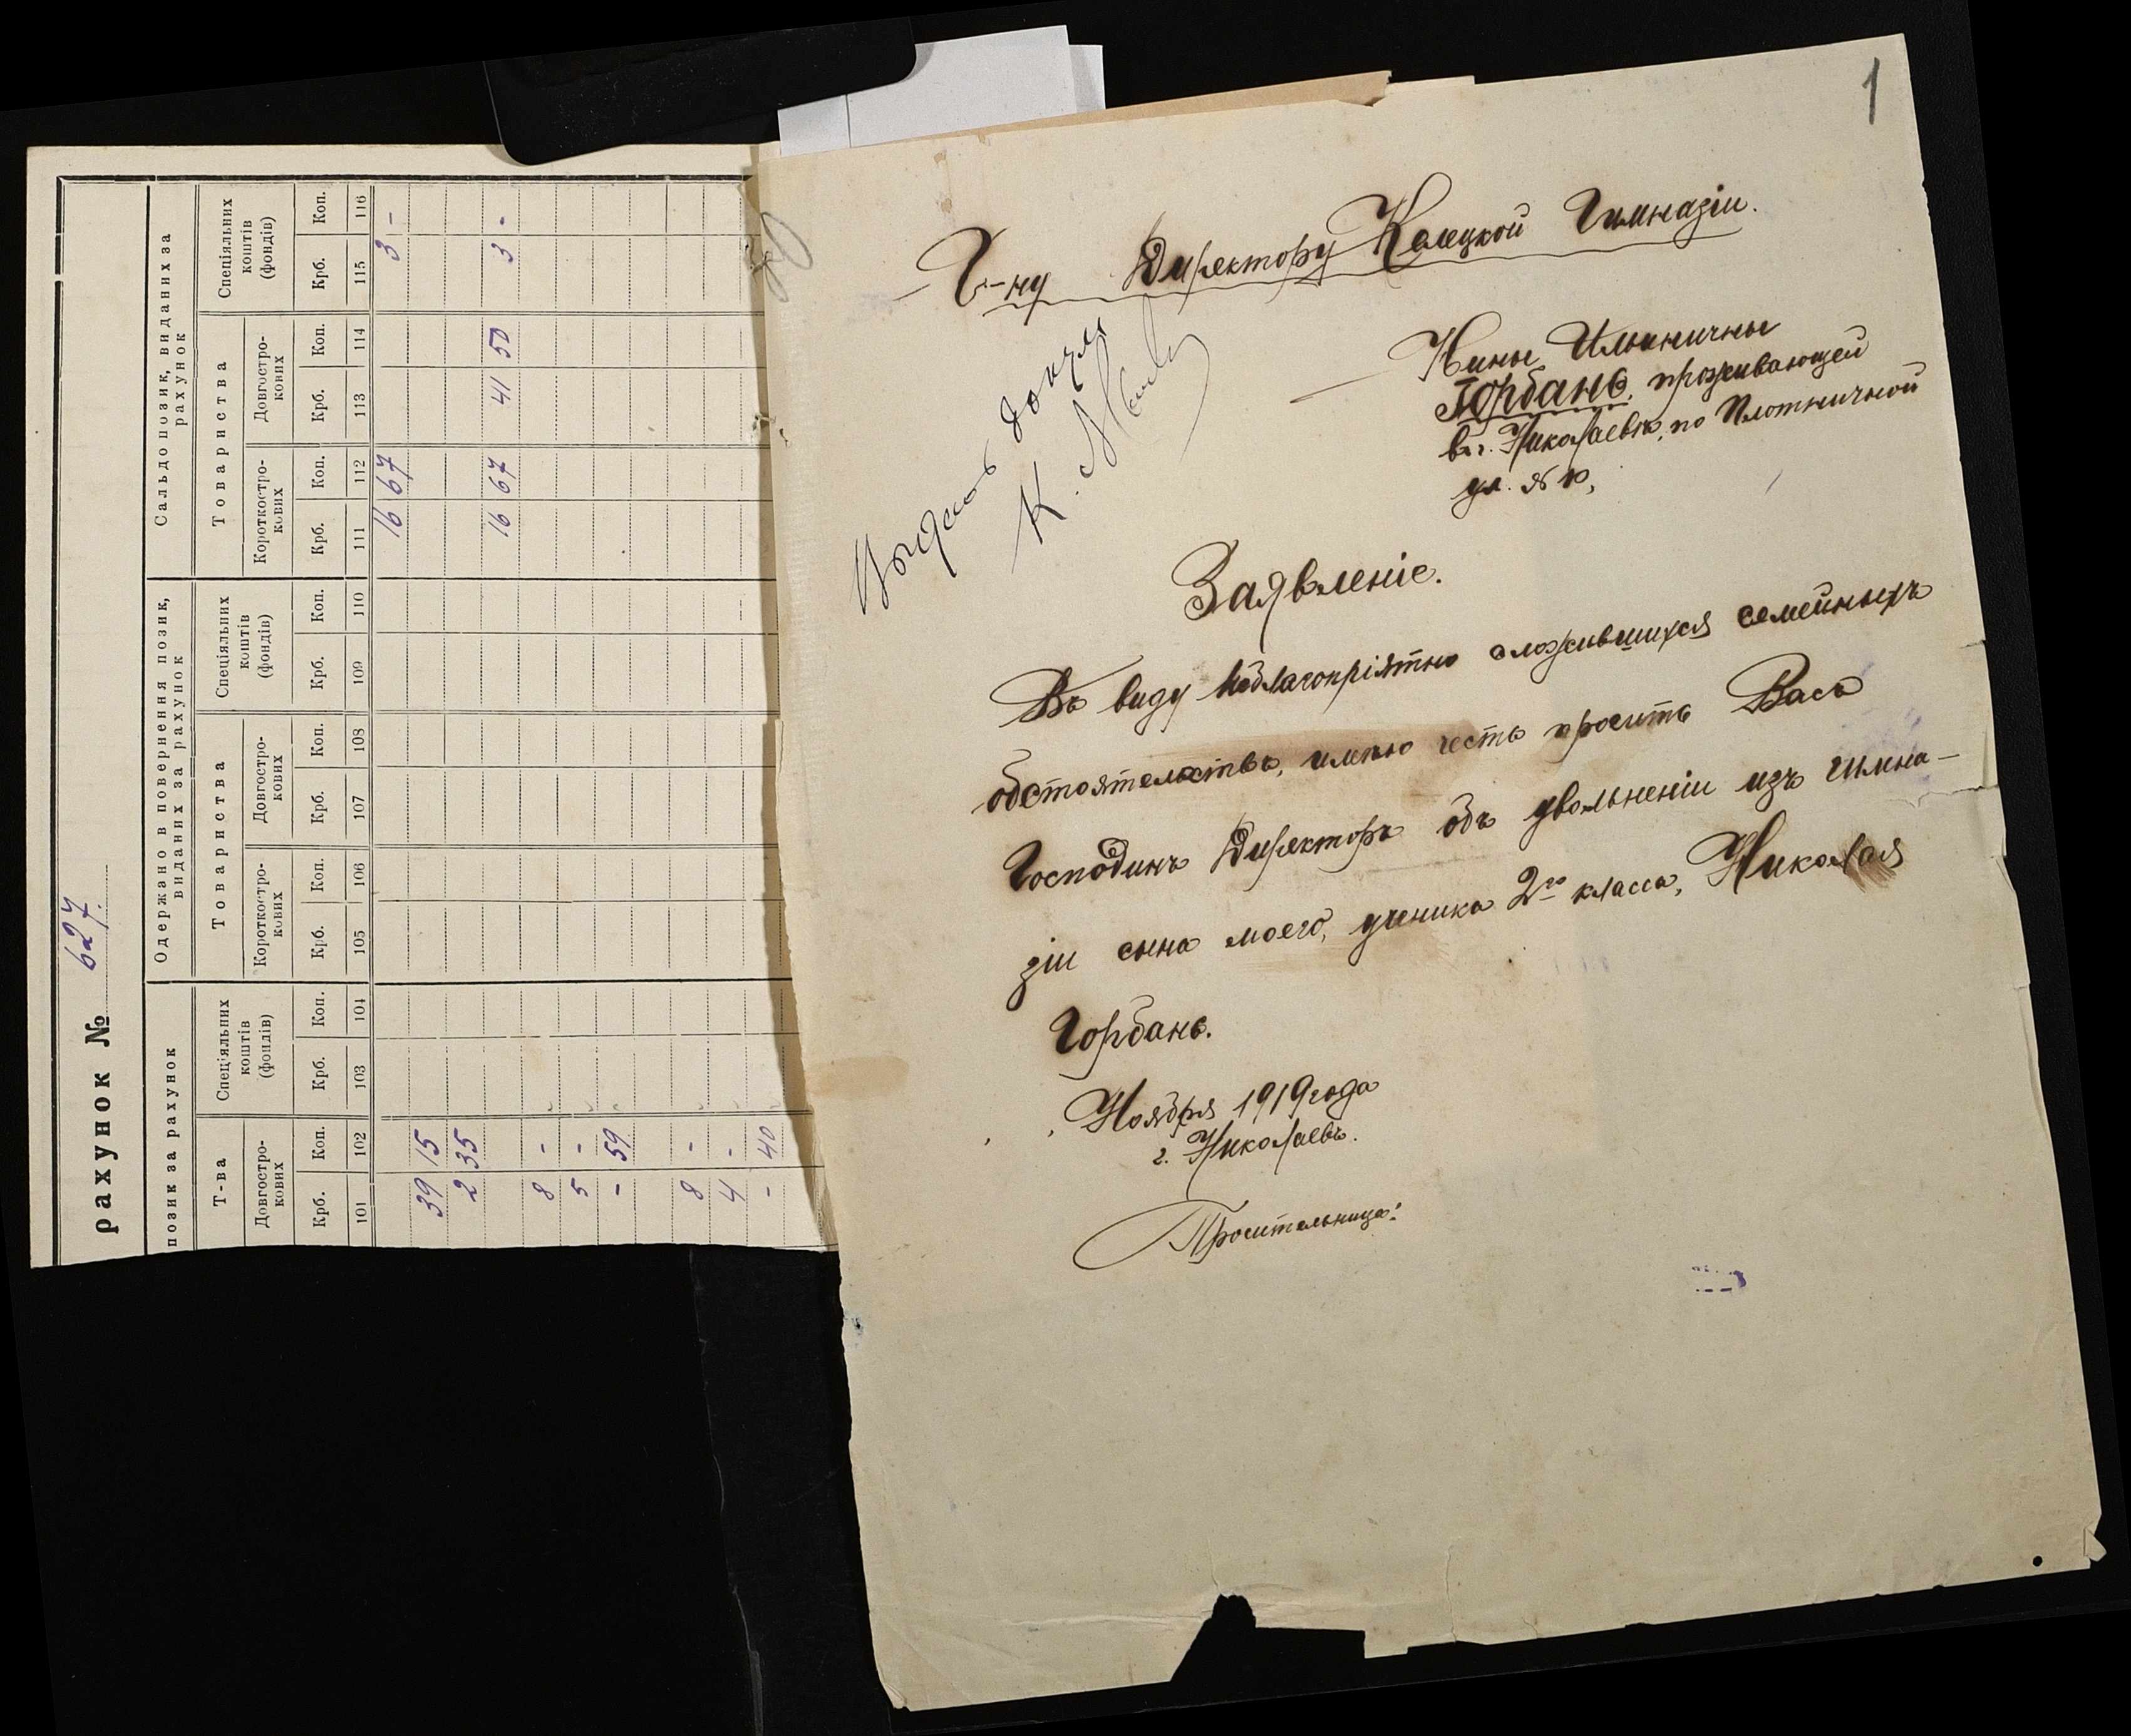 рахунок № 627
позик за рахунок
Одержано в повернення позик, виданих за рахунок
Сальдо позик, виданих за рахунок
Т-ва
Спеціяльних коштів (фондів)
Товариства
Спеціяльних коштів (фондів)
Товариства
Спеціяльних коштів (фондів)
Довгостро-кових
Короткостро-кових
Довгостро-кових
Короткостро-кових
Довгостро-кових
Крб. Коп. Крб. Коп. Крб. Коп. Крб. Коп. Крб. Коп. Крб. Коп. Крб. Коп. Крб. Коп.
101 102 103 104 105 106 107 108 109 110 111 112 113 114 115 116
16 67 3 -
39 15
2 35
16 67 41 50 3 -
8 -
5 -
- 59
8 -
4 -
- 40
1
Г-ну Директору Келецкой Гимназіи.
Нины Ильиничны
Горбань, проживающей
въ г. Николаевѣ, по Плотничной
ул. № 10,
Выдать докум
К.
Заявленіе.
Въ виду неблагопріятно сложившихся семейныхъ
обстоятельствъ, имѣю честь просить Васъ
Господинъ Директоръ объ увольненіи изъ гимна-
зіи сына моего, ученика 2го класса, Николая
Горбань.
Ноября 1919 года
г. Николаевъ.
Просительница: